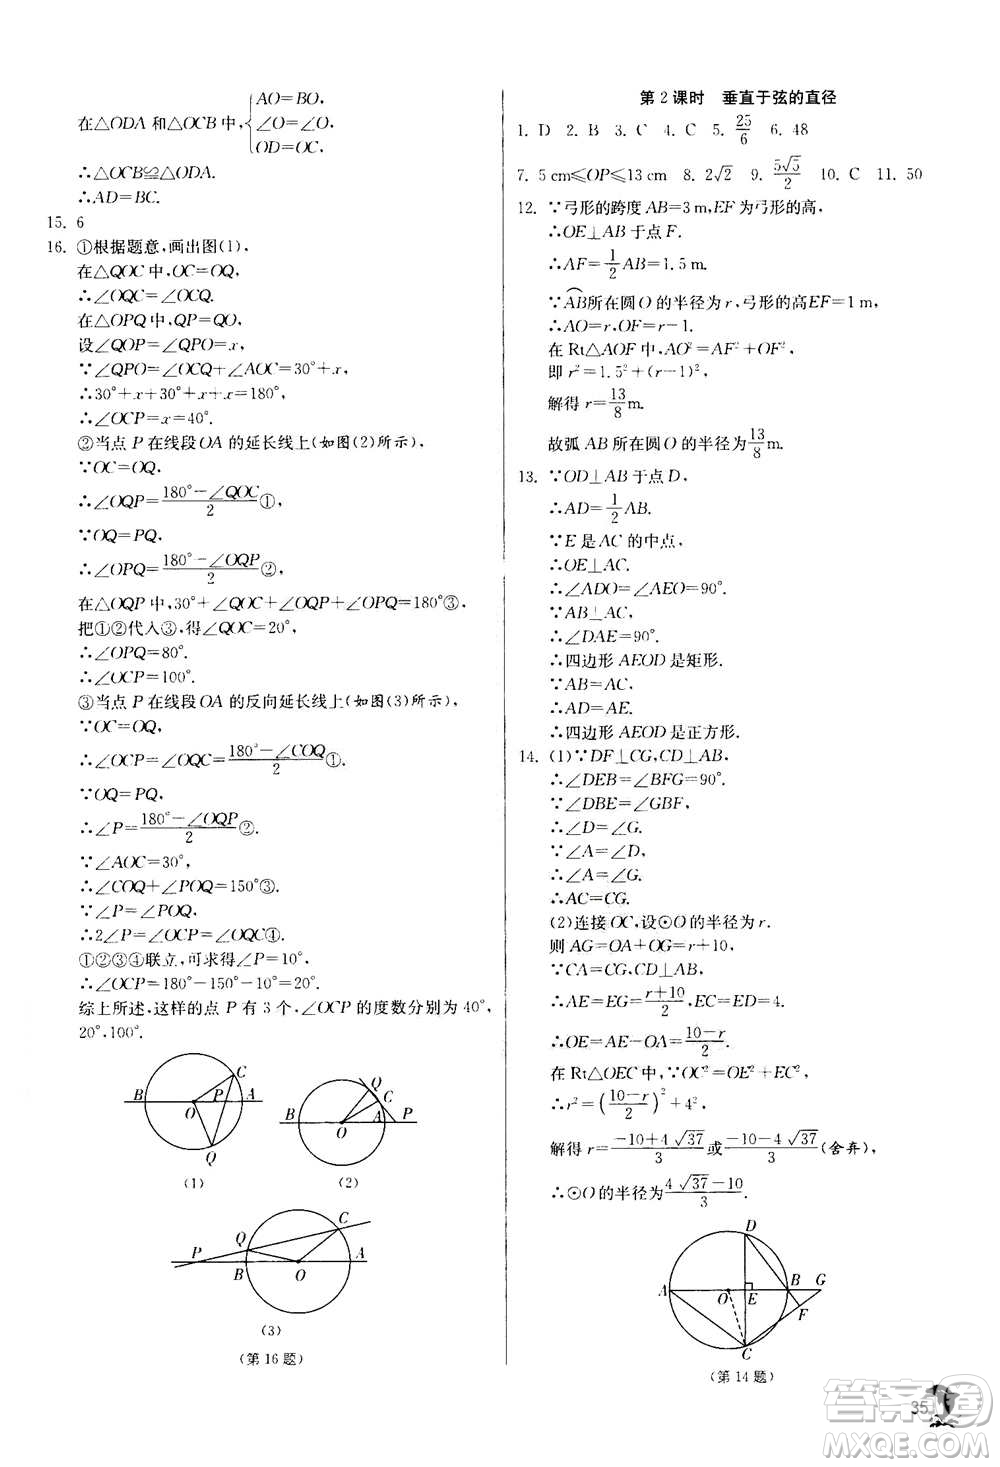 在△ODA 和△OCB 中,{AO=BO,
∠O=∠O,
OD=OC,
∴△OCB≌△ODA.
∴AD=BC.
15. 6
16. ①根据题意,画出图(1),
在△QOC 中,OC=OQ,
∴∠OQC=∠OCQ.
在△OPQ 中,QP=QO,
设∠QOP=∠QPO=x,
∵∠QPO=∠OCQ+∠AOC=30°+x,
∴30°+x+30°+x+x=180°,
∴∠OCP=x=40°.
②当点 P 在线段OA 的延长线上(如图(2)所示),
∵OC=OQ,
∴∠OQP=(180°-∠QOC)/2①,
∵OQ=PQ,
∴∠OPQ=(180°-∠OQP)/2②,
在△OQP 中,30°+∠QOC+∠OQP+∠OPQ=180°③,
把①②代入③,得∠QOC=20°,
∴∠OPQ=80°.
∴∠OCP=100°.
③当点 P 在线段OA 的反向延长线上(如图(3)所示),
∵OC=OQ,
∴∠OCP=∠OQC=(180°-∠COQ)/2①.
∵OQ=PQ,
∴∠P=(180°-∠OQP)/2②.
∵∠AOC=30°,
∴∠COQ+∠POQ=150°③.
∵∠P=∠POQ,
∴2∠P=∠OCP=∠OQC④.
①②③④联立,可求得∠P=10°,
∴∠OCP=180°-150°-10°=20°.
综上所述,这样的点 P 有 3 个,∠OCP 的度数分别为 40°,
20°,100°.
C B O P A Q
(1)
Q C B O A P
(2)
C Q P B O A
(3)
(第 16 题)
第 2 课时 垂直于弦的直径
1. D 2. B 3. C 4. C 5. 25/6 6. 48
7. 5 cm≤OP≤13 cm 8. 2√2 9. 5√5/2 10. C 11. 50
12. ∵弓形的跨度 AB=3 m,EF为弓形的高,
∴OE⊥AB于点 F.
∴AF=1/2 AB=1.5 m.
∵AB所在圆 O 的半径为 r,弓形的高EF=1 m,
∴AO=r,OF=r-1.
在 Rt△AOF 中,AO²=AF²+OF²,
即 r²=1.5²+(r-1)²,
解得 r=13/8 m.
故弧 AB 所在圆 O 的半径为13/8 m.
13. ∵OD⊥AB于点 D,
∴AD=1/2 AB.
∵E 是 AC 的中点,
∴OE⊥AC.
∴∠ADO=∠AEO=90°.
∵AB⊥AC,
∴∠DAE=90°.
∴四边形 AEOD 是矩形.
∵AB=AC,
∴AD=AE.
∴四边形 AEOD是正方形.
14. (1)∵DF⊥CG,CD⊥AB,
∴∠DEB=∠BFG=90°.
∵∠DBE=∠GBF,
∴∠D=∠G.
∵∠A=∠D,
∴∠A=∠G.
∴AC=CG.
(2)连接 OC,设⊙O 的半径为 r.
则 AG=OA+OG=r+10,
∵CA=CG,CD⊥AB,
∴AE=EG=(r+10)/2,EC=ED=4.
∴OE=AE-OA=(10-r)/2.
在 Rt△OEC 中,∵OC²=OE²+EC²,
∴r²=((10-r)/2)²+4².
解得 r=(-10+4√37)/3或(-10-4√37)/3(舍弃),
∴⊙O 的半径为(4√37-10)/3.
D A O E B G F C
(第 14 题)
35
答案圈
MXQE.COM